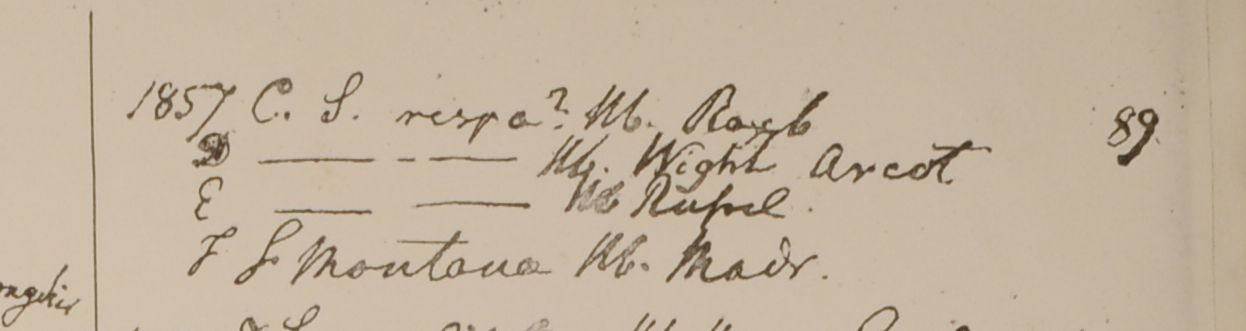 1857 C. S. respa? Hb. Roxb 89
D — - — Hb. Wight Arcot
E — — Hb Russel.
F S montana Hb. Madr.